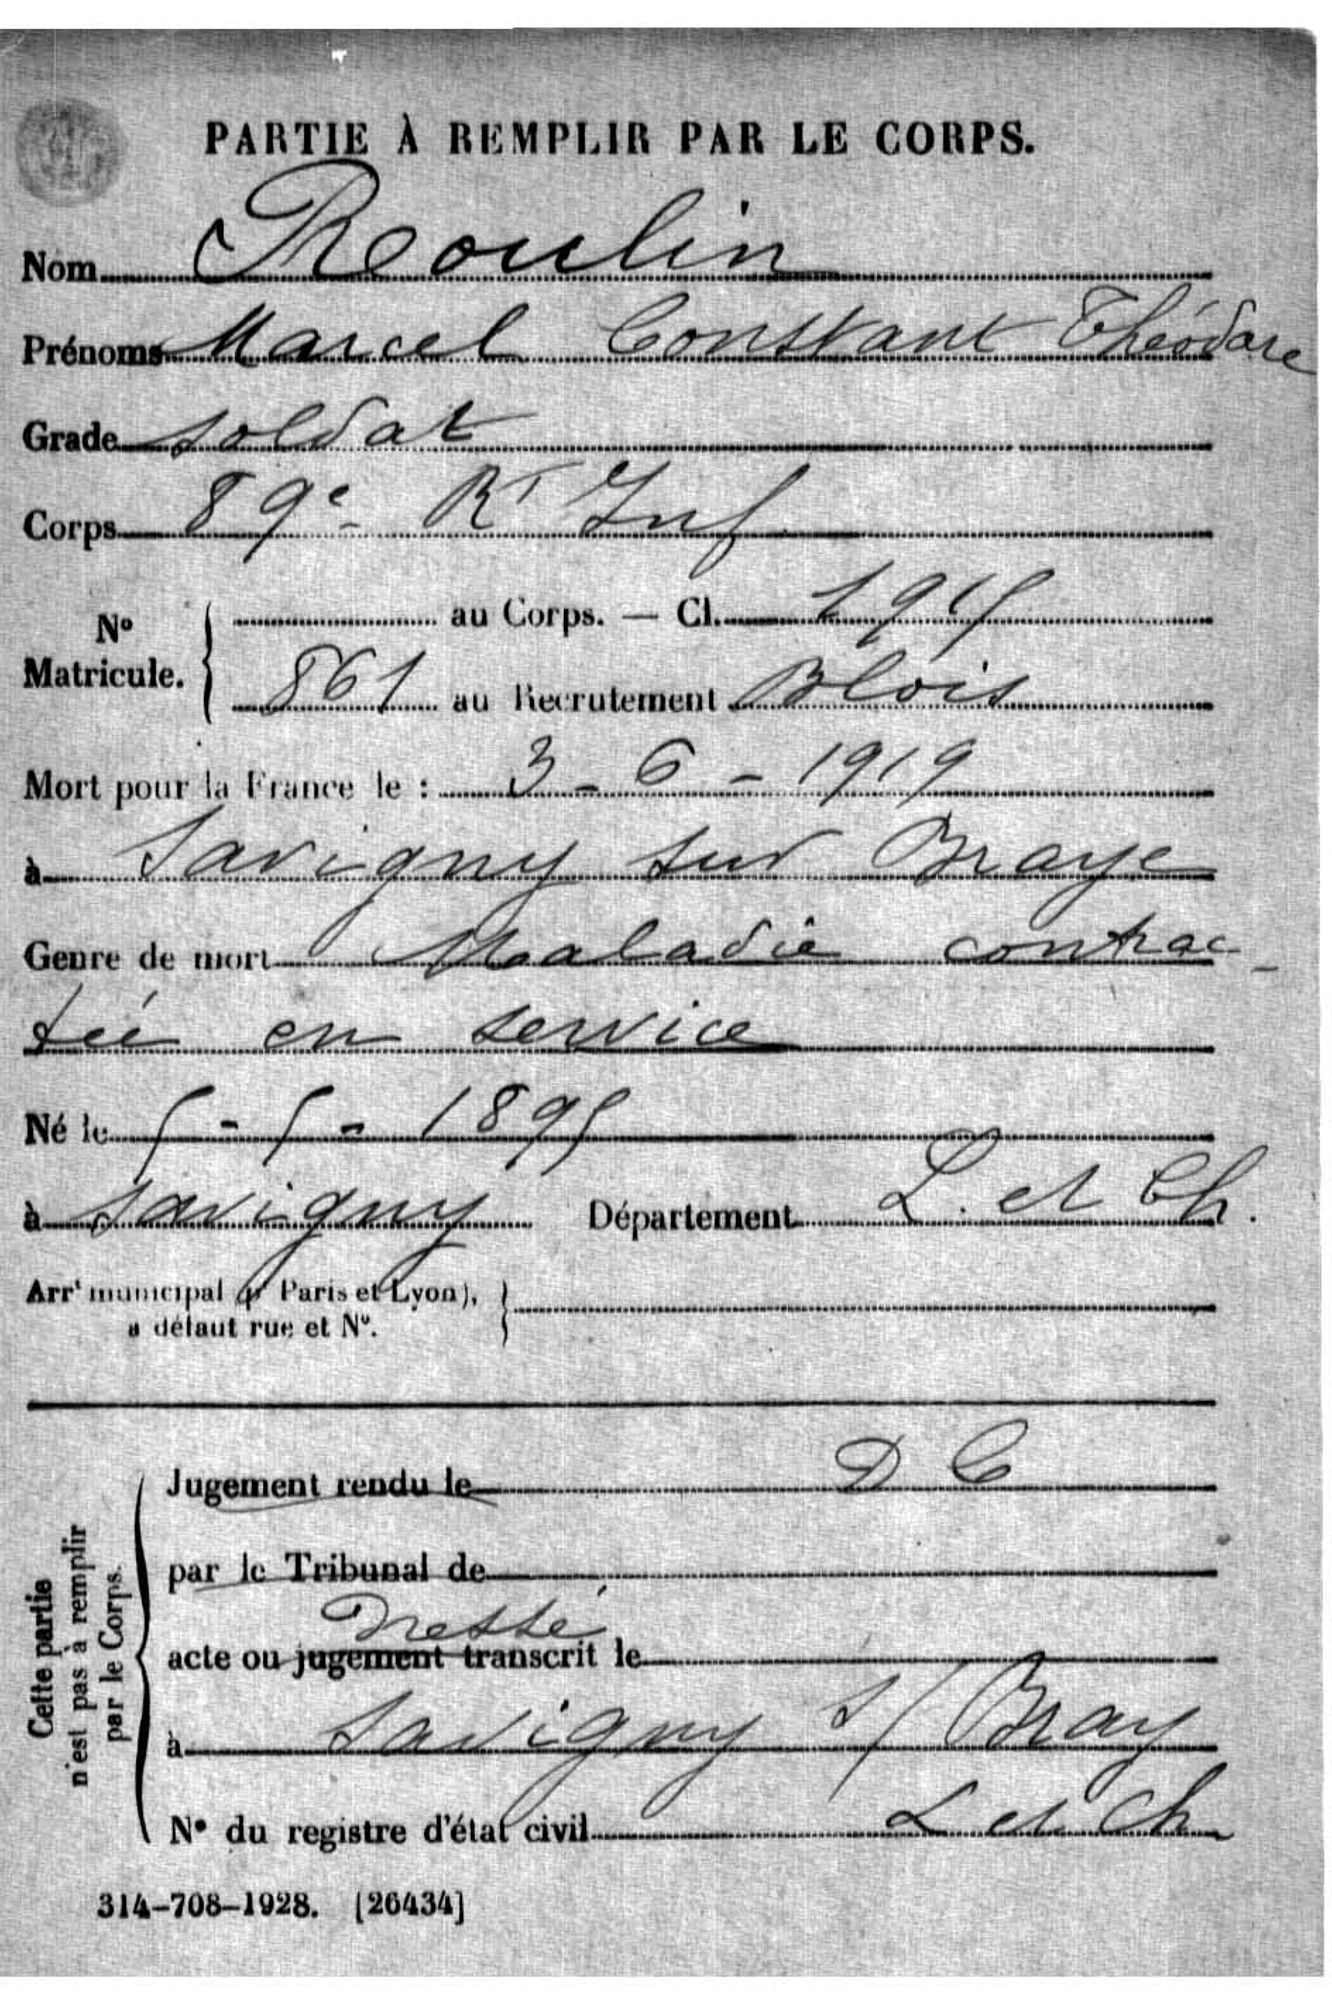 PARTIE À REMPLIR PAR LE CORPS.
Nom Reoulin
Prénoms Marcel Constant Théodore
Grade soldat
Corps 89e Rt Inf
N° Matricule.
au Corps. — Cl. 1915
861 au Recrutement Blois
Mort pour la France le : 3 - 6 - 1919
à Savigny sur Braye
Genre de mort Maladie contrac-
tée en service
Né le 5 - 5 - 1895
à Savigny Département L. et Ch.
Arrt municipal (pr Paris et Lyon),
à défaut rue et N°.
D C
Jugement rendu le
par le Tribunal de
Dressé
acte ou jugement transcrit le
à Savigny s/ Bray
L et Ch
N° du registre d'état civil
Cette partie
n'est pas à remplir
par le Corps.
314-708-1928. [26434]